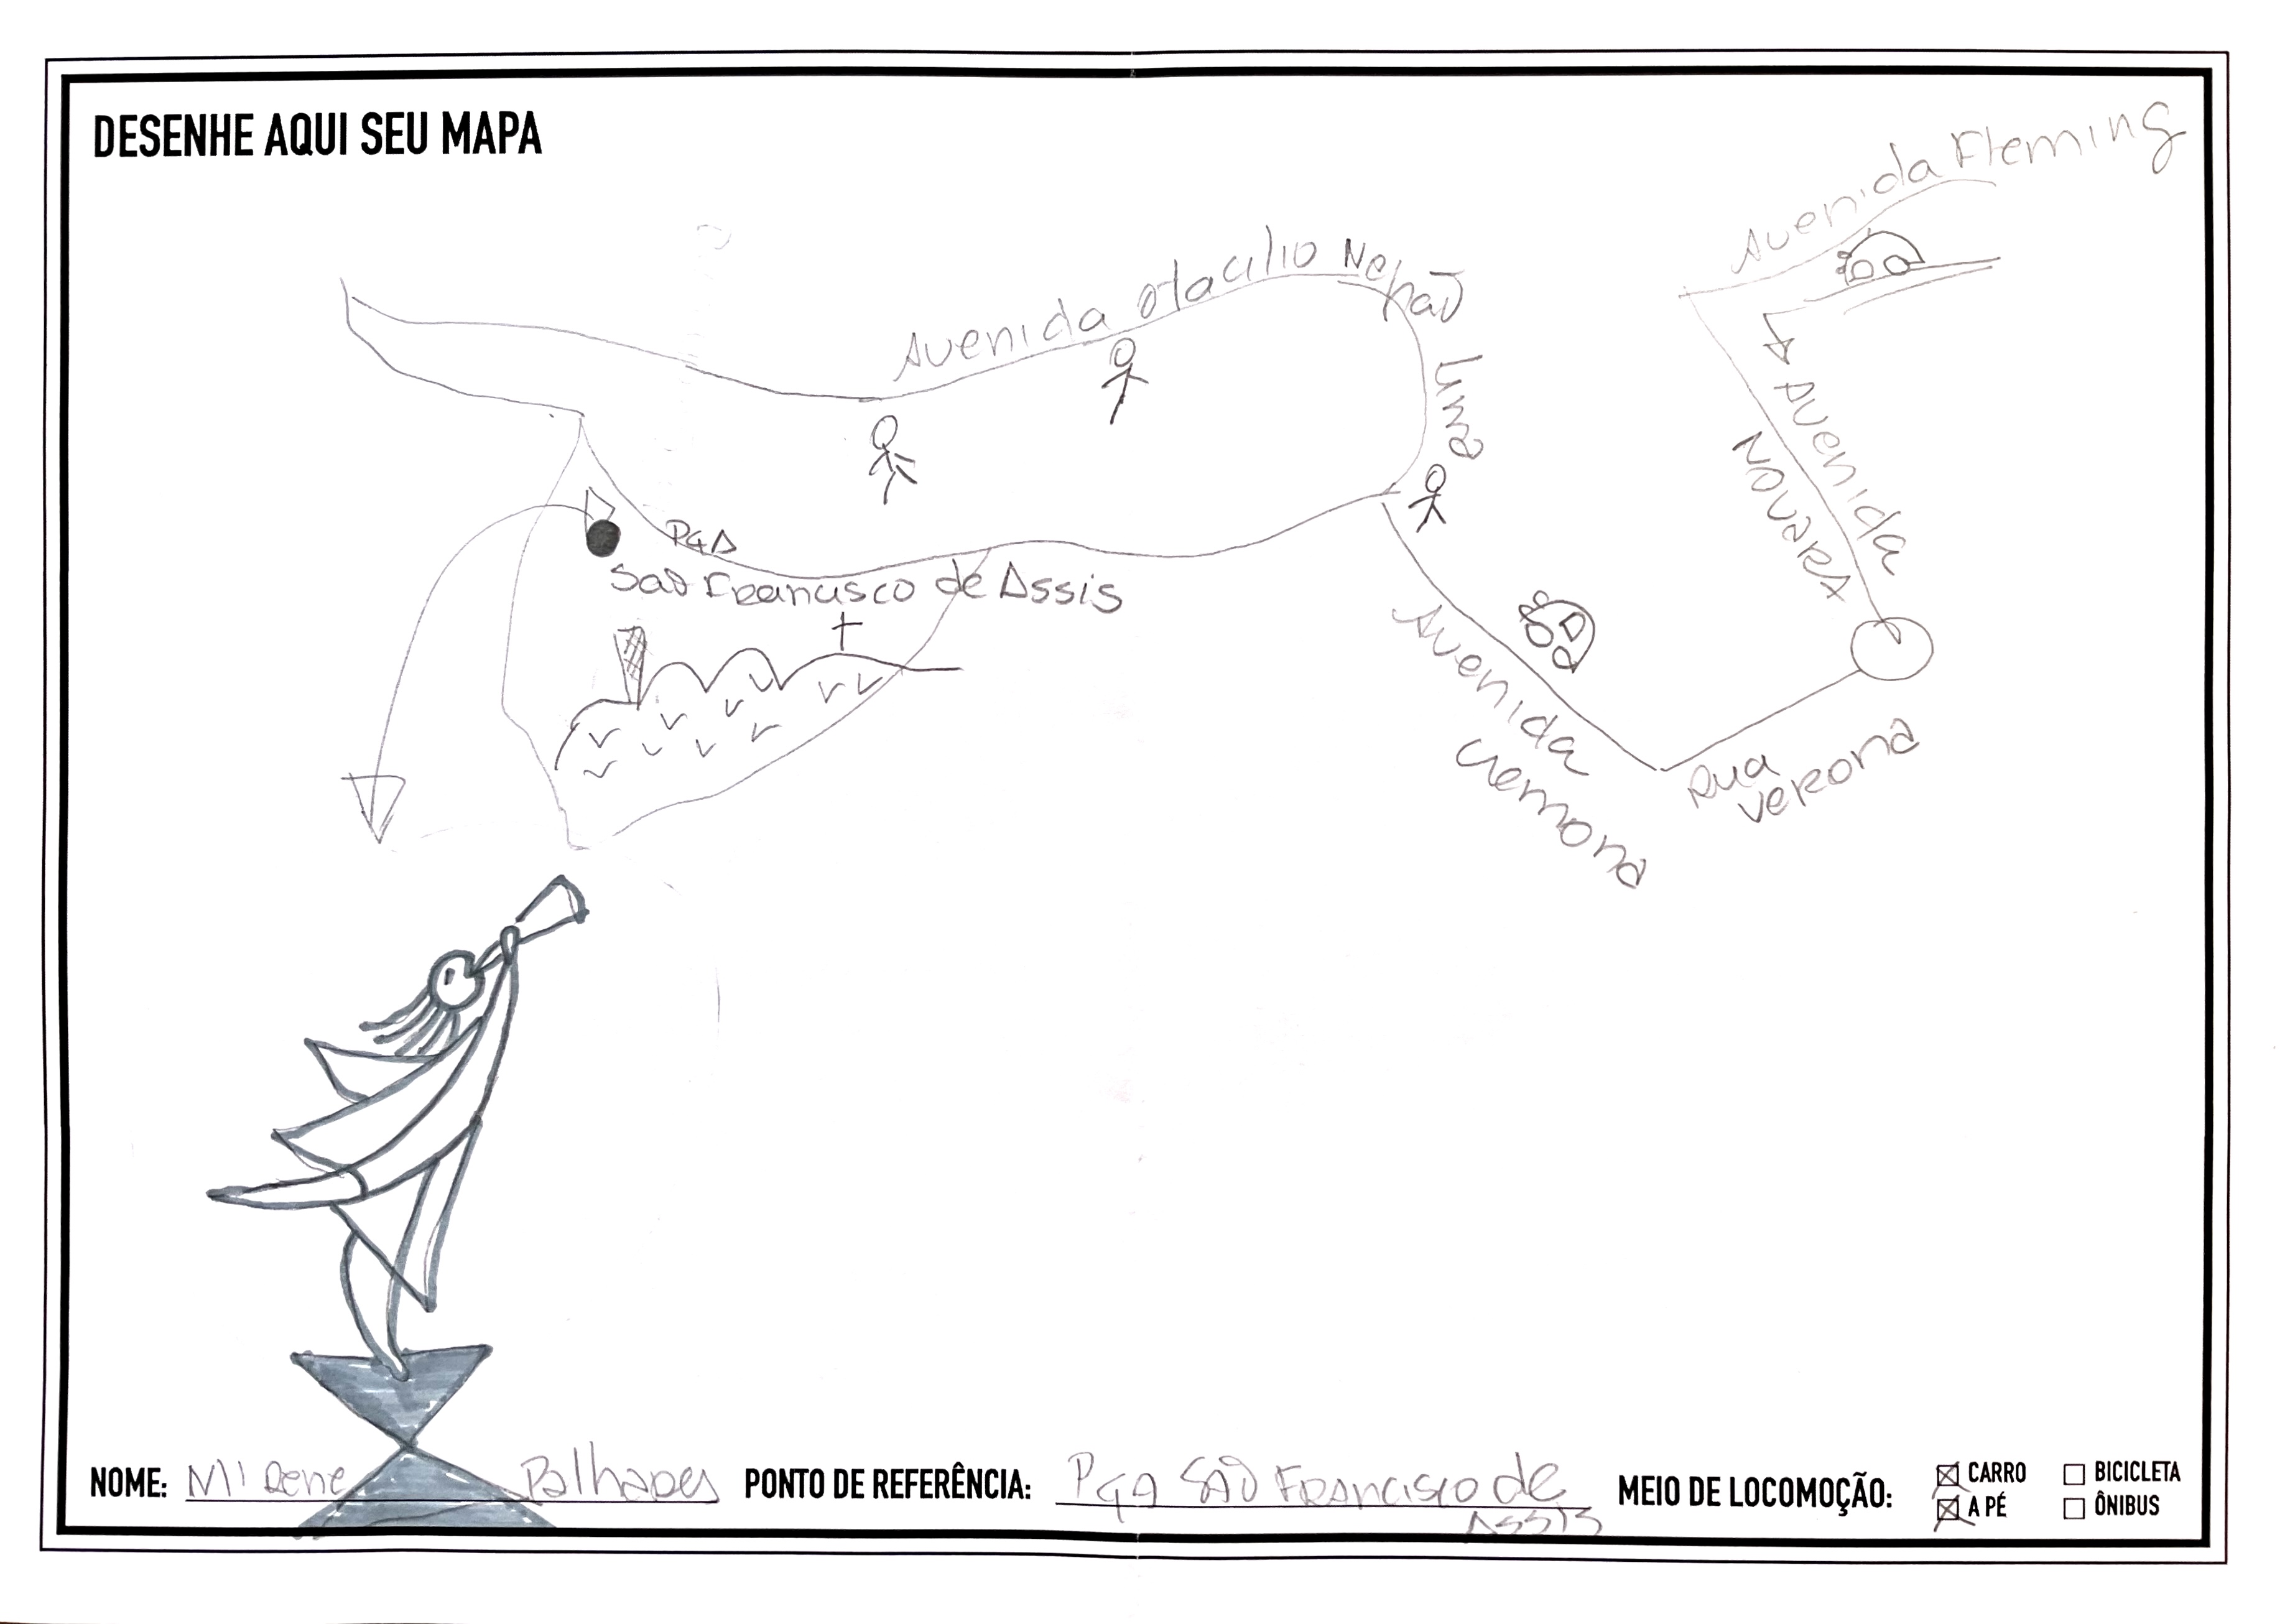 DESENHE AQUI SEU MAPA
Avenida Fleming
Avenida Otacilio Negrão
Lima
Avenida
NOVARA
PÇA
São Francisco de Assis
Avenida
Cremona
Rua
VERONA
NOME: Mª Rene Palhares
PONTO DE REFERÊNCIA: PÇA SÃO FRANCISCO de
ASSIS
MEIO DE LOCOMOÇÃO:
CARRO
BICICLETA
A PÉ
ÔNIBUS